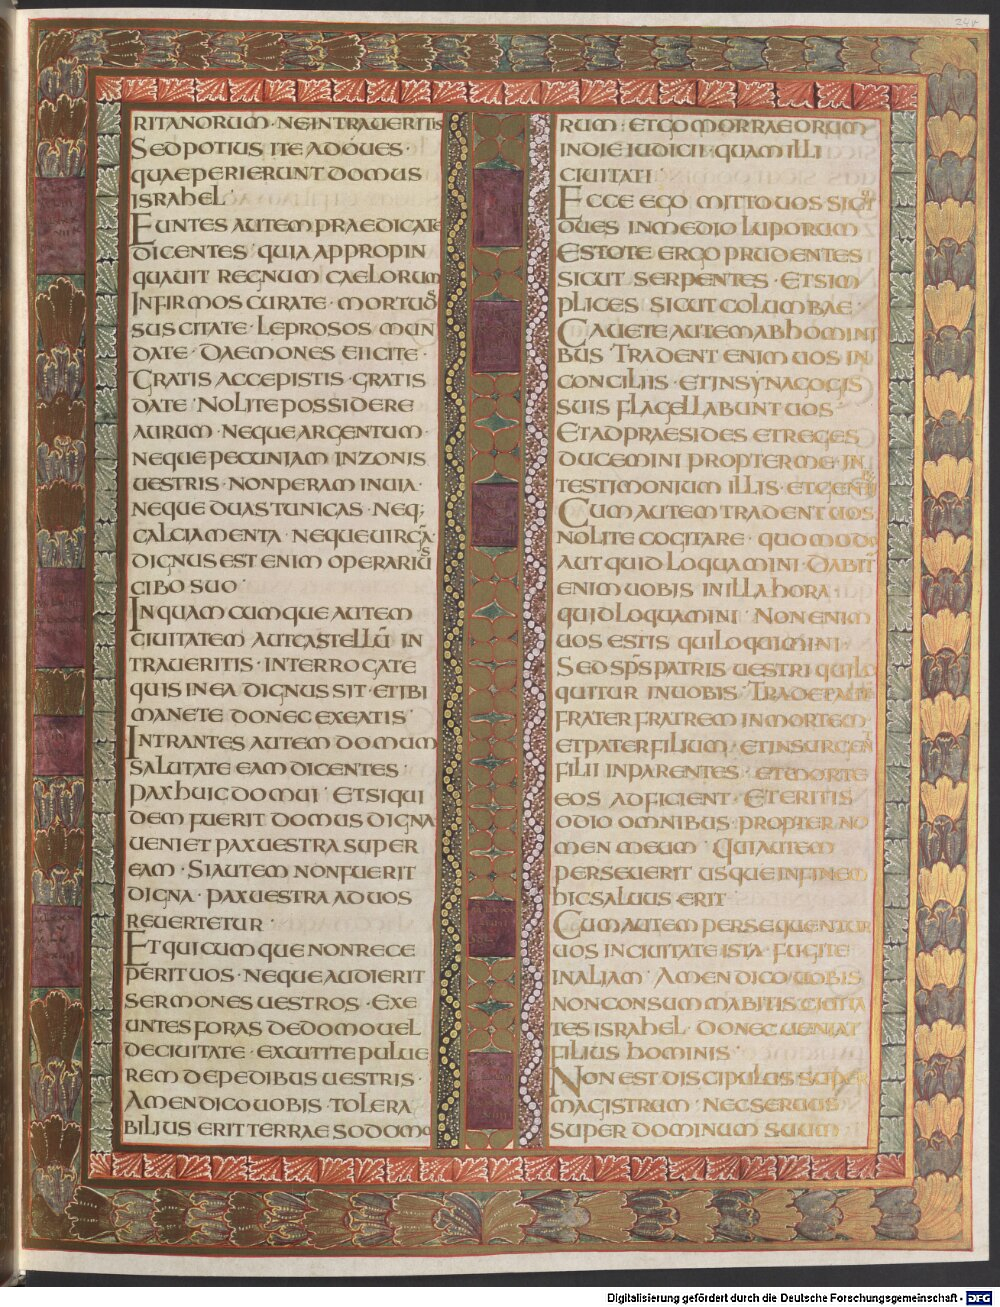 RITANORUM · NE INTRAUERITIS
SED POTIUS ITE AD OUES ·
QUAE PERIERUNT DOMUS
ISRAHEL ·
EUNTES AUTEM PRAEDICATE
DICENTES · QUIA APPROPIN
QUAUIT REGNUM CAELORUM
INFIRMOS CURATE · MORTUOS
SUSCITATE · LEPROSOS MUN
DATE · DAEMONES EIICITE ·
GRATIS ACCEPISTIS · GRATIS
DATE · NOLITE POSSIDERE
AURUM · NEQUE ARGENTUM ·
NEQUE PECUNIAM IN ZONIS
UESTRIS · NON PERAM IN UIA ·
NEQUE DUAS TUNICAS · NEQ;
CALCIAMENTA · NEQUE UIRGĀ ·
DIGNUS EST ENIM OPERARIUS
CIBO SUO ·
IN QUAMCUMQUE AUTEM
CIUITATEM AUT CASTELLŪ IN
TRAUERITIS · INTERROGATE
QUIS IN EA DIGNUS SIT · ET IBI
MANETE DONEC EXEATIS ·
INTRANTES AUTEM DOMUM
SALUTATE EAM DICENTES ·
PAX HUIC DOMUI · ET SI QUI
DEM FUERIT DOMUS DIGNA
UENIET PAX UESTRA SUPER
EAM · SI AUTEM NON FUERIT
DIGNA · PAX UESTRA AD UOS
REUERTETUR ·
ET QUICUMQUE NON RECE
PERIT UOS · NEQUE AUDIERIT
SERMONES UESTROS · EXE
UNTES FORAS DE DOMO UEL
DE CIUITATE · EXCUTITE PULUE
REM DE PEDIBUS UESTRIS ·
AMEN DICO UOBIS · TOLERA
BILIUS ERIT TERRAE SODOMO
RUM · ET GOMORRAEORUM
IN DIE IUDICII · QUAM ILLI
CIUITATI
ECCE EGO MITTO UOS SICUT
OUES IN MEDIO LUPORUM
ESTOTE ERGO PRUDENTES
SICUT SERPENTES · ET SIM
PLICES SICUT COLUMBAE ·
CAUETE AUTEM AB HOMINI
BUS · TRADENT ENIM UOS IN
CONCILIIS · ET IN SYNAGOGIS
SUIS FLAGELLABUNT UOS ·
ET AD PRAESIDES ET REGES
DUCEMINI PROPTER ME · IN
TESTIMONIUM ILLIS · ET GENTIB
CUM AUTEM TRADENT UOS
NOLITE COGITARE · QUOMODO
AUT QUID LOQUAMINI · DABIT
ENIM UOBIS IN ILLA HORA ·
QUID LOQUAMINI · NON ENIM
UOS ESTIS QUI LOQUIMINI ·
SED SPS PATRIS UESTRI QUI LO
QUITUR IN UOBIS · TRADET AUT
FRATER FRATREM IN MORTEM ·
ET PATER FILIUM · ET INSURGENT
FILII IN PARENTES · ET MORTE
EOS ADFICIENT · ET ERITIS
ODIO OMNIBUS · PROPTER NO
MEN MEUM · QUI AUTEM
PERSEUERIT USQUE IN FINEM
HIC SALUUS ERIT ·
CUM AUTEM PERSEQUENTUR
UOS IN CIUITATE ISTA · FUGITE
IN ALIAM · AMEN DICO UOBIS
NON CONSUMMABITIS CIUITA
TES ISRAHEL · DONEC UENIAT
FILIUS HOMINIS ·
NON EST DISCIPULUS SUPER
MAGISTRUM · NEC SERUUS
SUPER DOMINUM SUUM ·
24v
Digitalisierung gefördert durch die Deutsche Forschungsgemeinschaft - DFG